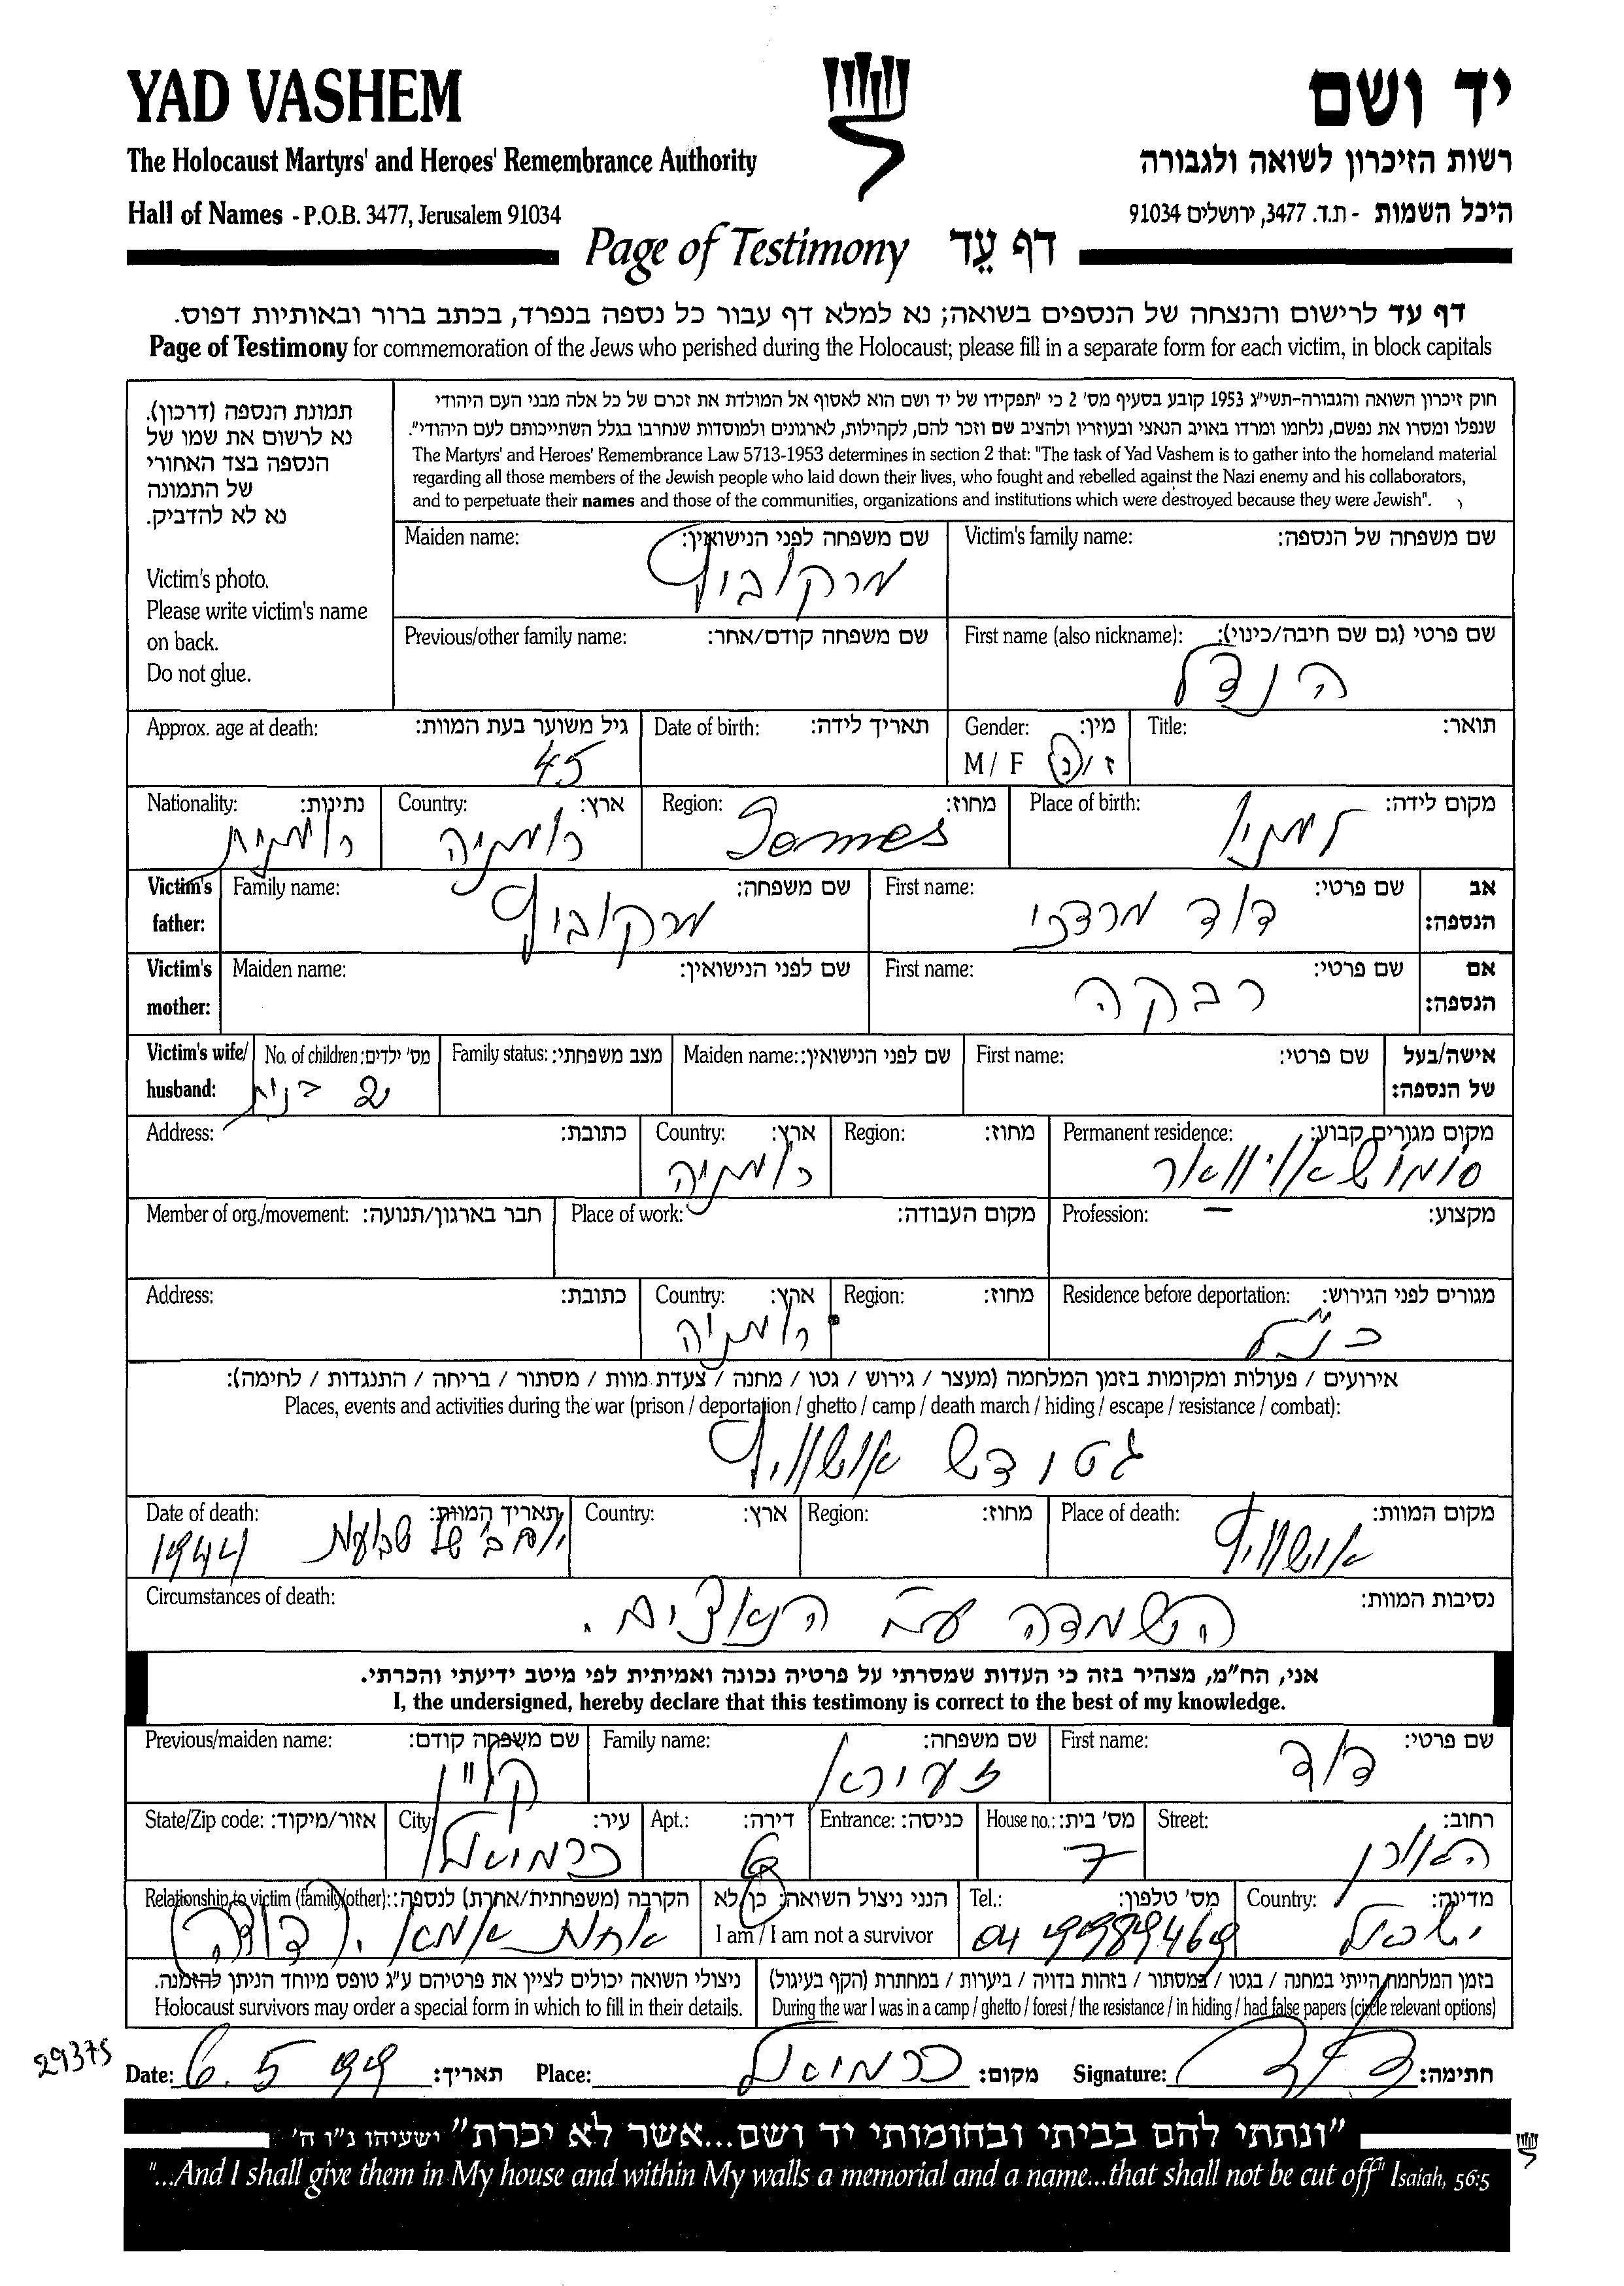 YAD VASHEM
יד ושם
The Holocaust Martyrs' and Heroes' Remembrance Authority
רשות הזיכרון לשואה ולגבורה
Hall of Names - P.O.B. 3477, Jerusalem 91034
היכל השמות - ת.ד. 3477, ירושלים 91034
Page of Testimony דף עֵד
דף עד לרישום והנצחה של הנספים בשואה; נא למלא דף עבור כל נספה בנפרד, בכתב ברור ובאותיות דפוס.
Page of Testimony for commemoration of the Jews who perished during the Holocaust; please fill in a separate form for each victim, in block capitals
תמונת הנספה (דרכון).
נא לרשום את שמו של
הנספה בצד האחורי
של התמונה
נא לא להדביק.
Victim's photo.
Please write victim's name
on back.
Do not glue.
חוק זיכרון השואה והגבורה-תשי"ג 1953 קובע בסעיף מס' 2 כי "תפקידו של יד ושם הוא לאסוף אל המולדת את זכרם של כל אלה מבני העם היהודי
שנפלו ומסרו את נפשם, נלחמו ומרדו באויב הנאצי ובעוזריו ולהציב שם וזכר להם, לקהילות, לארגונים ולמוסדות שנחרבו בגלל השתייכותם לעם היהודי".
The Martyrs' and Heroes' Remembrance Law 5713-1953 determines in section 2 that: "The task of Yad Vashem is to gather into the homeland material
regarding all those members of the Jewish people who laid down their lives, who fought and rebelled against the Nazi enemy and his collaborators,
and to perpetuate their names and those of the communities, organizations and institutions which were destroyed because they were Jewish".
Victim's family name: שם משפחה של הנספה:
Maiden name: שם משפחה לפני הנישואין:
מרקוביץ
First name (also nickname): שם פרטי (גם שם חיבה/כינוי):
הנדל
Previous/other family name: שם משפחה קודם/אחר:
Title: תואר:
Gender: מין:
M / F ז/נ
Date of birth: תאריך לידה:
Approx. age at death: גיל משוער בעת המוות:
45
Place of birth: מקום לידה:
Region: מחוז:
Somes
Country: ארץ:
רומניה
Nationality: נתינות:
רומנית
Victim's father: אב הנספה:
First name: שם פרטי:
דוד מרדכי
Family name: שם משפחה:
מרקוביץ
Victim's mother: אם הנספה:
First name: שם פרטי:
רבקה
Maiden name: שם לפני הנישואין:
Victim's wife/ husband: אישה/בעל של הנספה:
First name: שם פרטי:
Maiden name: שם לפני הנישואין:
Family status: מצב משפחתי:
No. of children: מס' ילדים:
2 בנות
Permanent residence: מקום מגורים קבוע:
סומושאויוואר
Region: מחוז:
Country: ארץ:
רומניה
Address: כתובת:
Profession: מקצוע:
Place of work: מקום העבודה:
Member of org./movement: חבר בארגון/תנועה:
Residence before deportation: מגורים לפני הגירוש:
כנ"ל
Region: מחוז:
Country: ארץ:
רומניה
Address: כתובת:
אירועים / פעולות ומקומות בזמן המלחמה (מעצר / גירוש / גטו / מחנה / צעדת מוות / מסתור / בריחה / התנגדות / לחימה):
Places, events and activities during the war (prison / deportation / ghetto / camp / death march / hiding / escape / resistance / combat):
גטו דש אושוויץ
Place of death: מקום המוות:
אושוויץ
Region: מחוז:
Country: ארץ:
Date of death: תאריך המוות:
יום ב' של שבועות 1944
Circumstances of death: נסיבות המוות:
השמדה ע"י הנאצים.
אני, הח"מ, מצהיר בזה כי העדות שמסרתי על פרטיה נכונה ואמיתית לפי מיטב ידיעתי והכרתי.
I, the undersigned, hereby declare that this testimony is correct to the best of my knowledge.
First name: שם פרטי:
דוד
Family name: שם משפחה:
זעירא
Previous/maiden name: שם משפחה קודם:
קליין
Street: רחוב:
האורן
House no.: מס' בית:
7
Entrance: כניסה:
Apt.: דירה:
6
City: עיר:
כרמיאל
State/Zip code: אזור/מיקוד:
Country: מדינה:
ישראל
Tel.: מס' טלפון:
04 9989469
הנני ניצול השואה: כן/לא
I am / I am not a survivor
Relationship to victim (family/other): הקרבה (משפחתית/אחרת) לנספה:
אחות אמא. (דודה)
בזמן המלחמה הייתי במחנה / בגטו / במסתור / בזהות בדויה / ביערות / במחתרת (הקף בעיגול)
During the war I was in a camp / ghetto / forest / the resistance / in hiding / had false papers (circle relevant options)
ניצולי השואה יכולים לציין את פרטיהם ע"ג טופס מיוחד הניתן להזמנה.
Holocaust survivors may order a special form in which to fill in their details.
29375
Date: 6. 5 99 תאריך:
Place: כרמיאל מקום:
Signature: חתימה:
"ונתתי להם בביתי ובחומותי יד ושם...אשר לא יכרת" ישעיהו נ"ו ה'
"...And I shall give them in My house and within My walls a memorial and a name...that shall not be cut off" Isaiah, 56:5